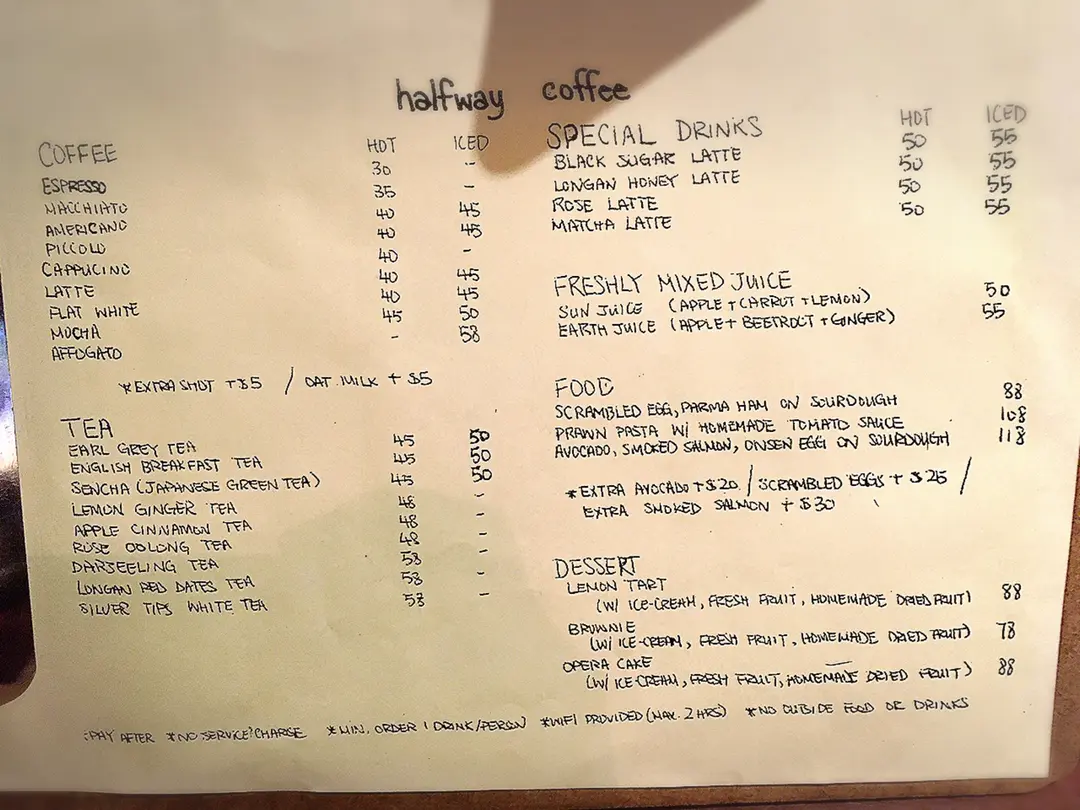 halfway coffee
COFFEE HOT ICED
ESPRESSO 30 -
MACCHIATO 35 -
AMERICANO 40 45
PICCOLO 40 45
CAPPUCINO 40 -
LATTE 40 45
FLAT WHITE 40 45
MOCHA 45 50
AFFOGATO - 58
*EXTRA SHOT +$5 / OAT MILK + $5
TEA
EARL GREY TEA 45 50
ENGLISH BREAKFAST TEA 45 50
SENCHA (JAPANESE GREEN TEA) 45 50
LEMON GINGER TEA 48 -
APPLE CINNAMON TEA 48 -
ROSE OOLONG TEA 48 -
DARJEELING TEA 58 -
LONGAN RED DATES TEA 58 -
SILVER TIPS WHITE TEA 58 -
SPECIAL DRINKS HOT ICED
BLACK SUGAR LATTE 50 55
LONGAN HONEY LATTE 50 55
ROSE LATTE 50 55
MATCHA LATTE 50 55
FRESHLY MIXED JUICE
SUN JUICE (APPLE+CARROT+LEMON) 50
EARTH JUICE (APPLE+ BEETROOT +GINGER) 55
FOOD
SCRAMBLED EGG, PARMA HAM ON SOURDOUGH 88
PRAWN PASTA W/ HOMEMADE TOMATO SAUCE 108
AVOCADO, SMOKED SALMON, ONSEN EGG ON SOURDOUGH 118
*EXTRA AVOCADO +$20 / SCRAMBLED EGGS + $25 /
EXTRA SMOKED SALMON + $30
DESSERT
LEMON TART
(W/ ICE-CREAM, FRESH FRUIT, HOMEMADE DRIED FRUIT) 88
BROWNIE
(W/ ICE-CREAM, FRESH FRUIT, HOMEMADE DRIED FRUIT) 78
OPERA CAKE
(W/ ICE-CREAM, FRESH FRUIT, HOMEMADE DRIED FRUIT) 88
*PAY AFTER *NO SERVICE CHARGE *MIN. ORDER 1 DRINK/PERSON *WIFI PROVIDED (MAX. 2 HRS) *NO OUTSIDE FOOD OR DRINKS